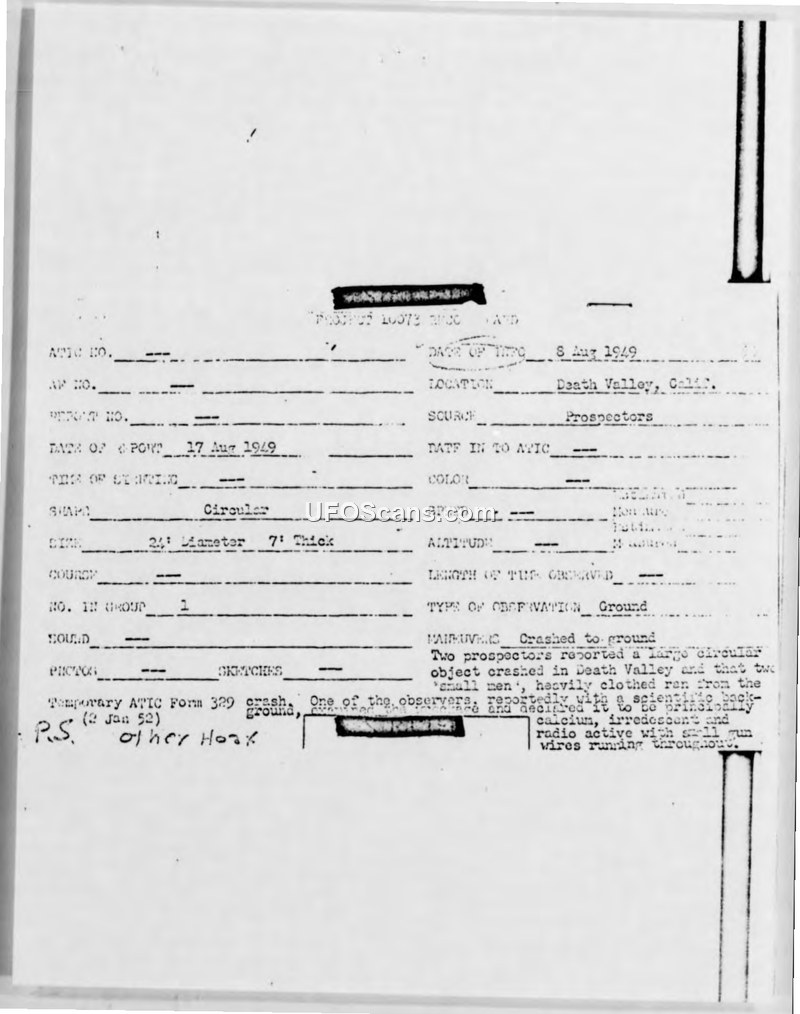 PROJECT 10073 CARD
ATIC NO. --- DATE OF INFO 8 Aug 1949
AF NO. --- LOCATION Death Valley, Calif.
REPORT NO. --- SOURCE Prospectors
DATE OF REPORT 17 Aug 1949 DATE IN TO ATIC ---
TIME OF SIGHTING --- COLOR ---
SHAPE Circular SPEED ---
UFOScans.com
SIZE 24' Diameter 7' Thick ALTITUDE ---
COURSE --- LENGTH OF TIME OBSERVED ---
NO. IN GROUP 1 TYPE OF OBSERVATION Ground
SOUND --- MANEUVERS Crashed to ground
Two prospectors reported a large circular
PHOTOS --- SKETCHES --- object crashed in Death Valley and that two
'small men', heavily clothed ran from the
Temporary ATIC Form 329 crash. One of the observers, reportedly with a scientific back-
(2 Jan 52) ground, examined the and declared it to be principally
P.S. other Hoax calcium, irredescent and
radio active with small gun
wires running throughout.